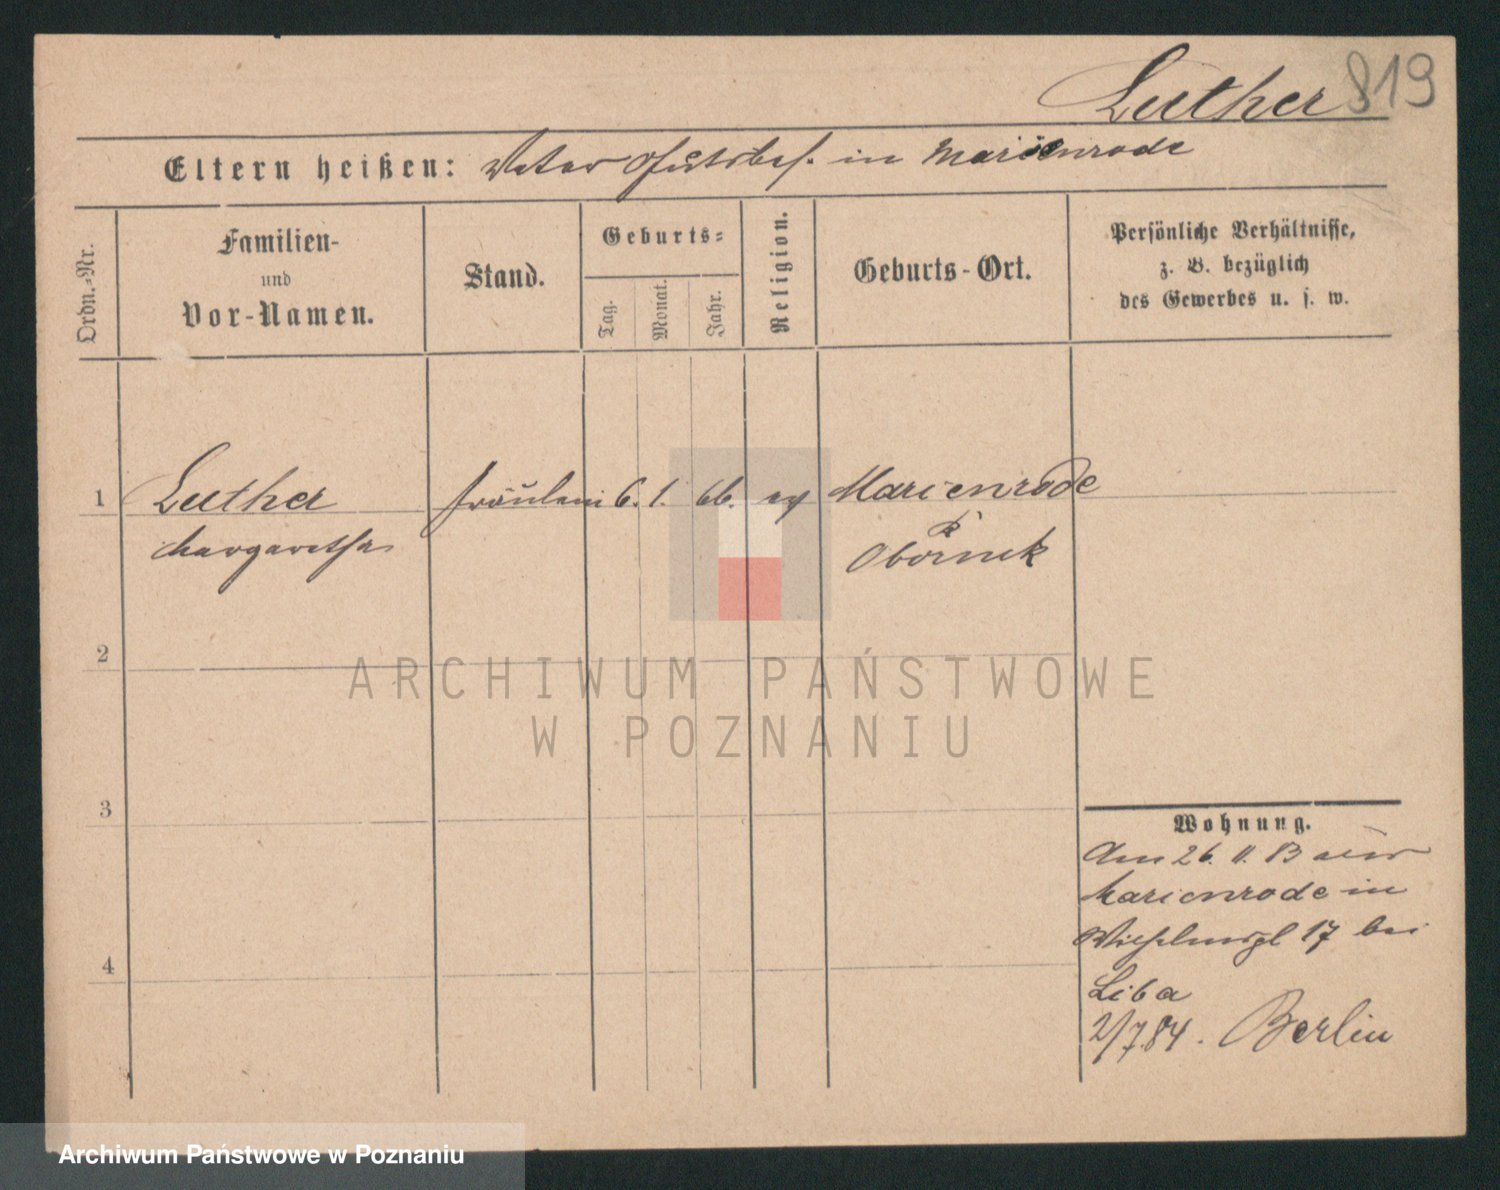 Luther 819
Eltern heißen: Vater Gutsbes. in Marienrode
Ordn.=Nr.
Familien-
und
Vor-Namen.
Stand.
Geburts=
Tag.
Monat.
Jahr.
Religion.
Geburts-Ort.
Persönliche Verhältnisse,
z. B. bezüglich
des Gewerbes u. s. w.
1 Luther Fräulein 6. 1. 66. ev Marienrode
Margaretha
Obornik
2
3
4
Wohnung.
Am 26. 11. 13 aus
Marienrode in
Wilhelmspl 17 bei
Liba
2/7.84. Berlin
ARCHIWUM PAŃSTWOWE
W POZNANIU
Archiwum Państwowe w Poznaniu